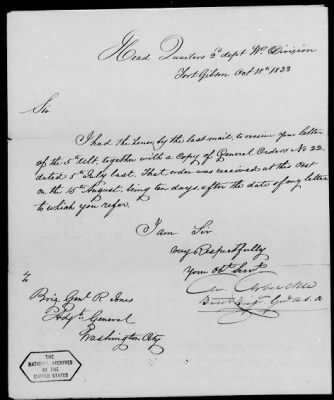 Head Quarters 2d dept Wn Division
Fort Gibson Oct 18th 1833
Sir
I had the honor by the last mail, to receive your letter
of the 5th Ulto, together with a Copy of General Orders No 22
dated 5th July last. That order was received at this Post
on the 15th August, being ten days, after the date of my letter
to which you refer.
I am Sir
very Respectfully
Your Obt Servt
M. Arbuckle
Brevt Brigr Genl U.S.A
Brig. Genl R Jones
Adjt. General
Washington City
THE
NATIONAL ARCHIVES
OF THE
UNITED STATES